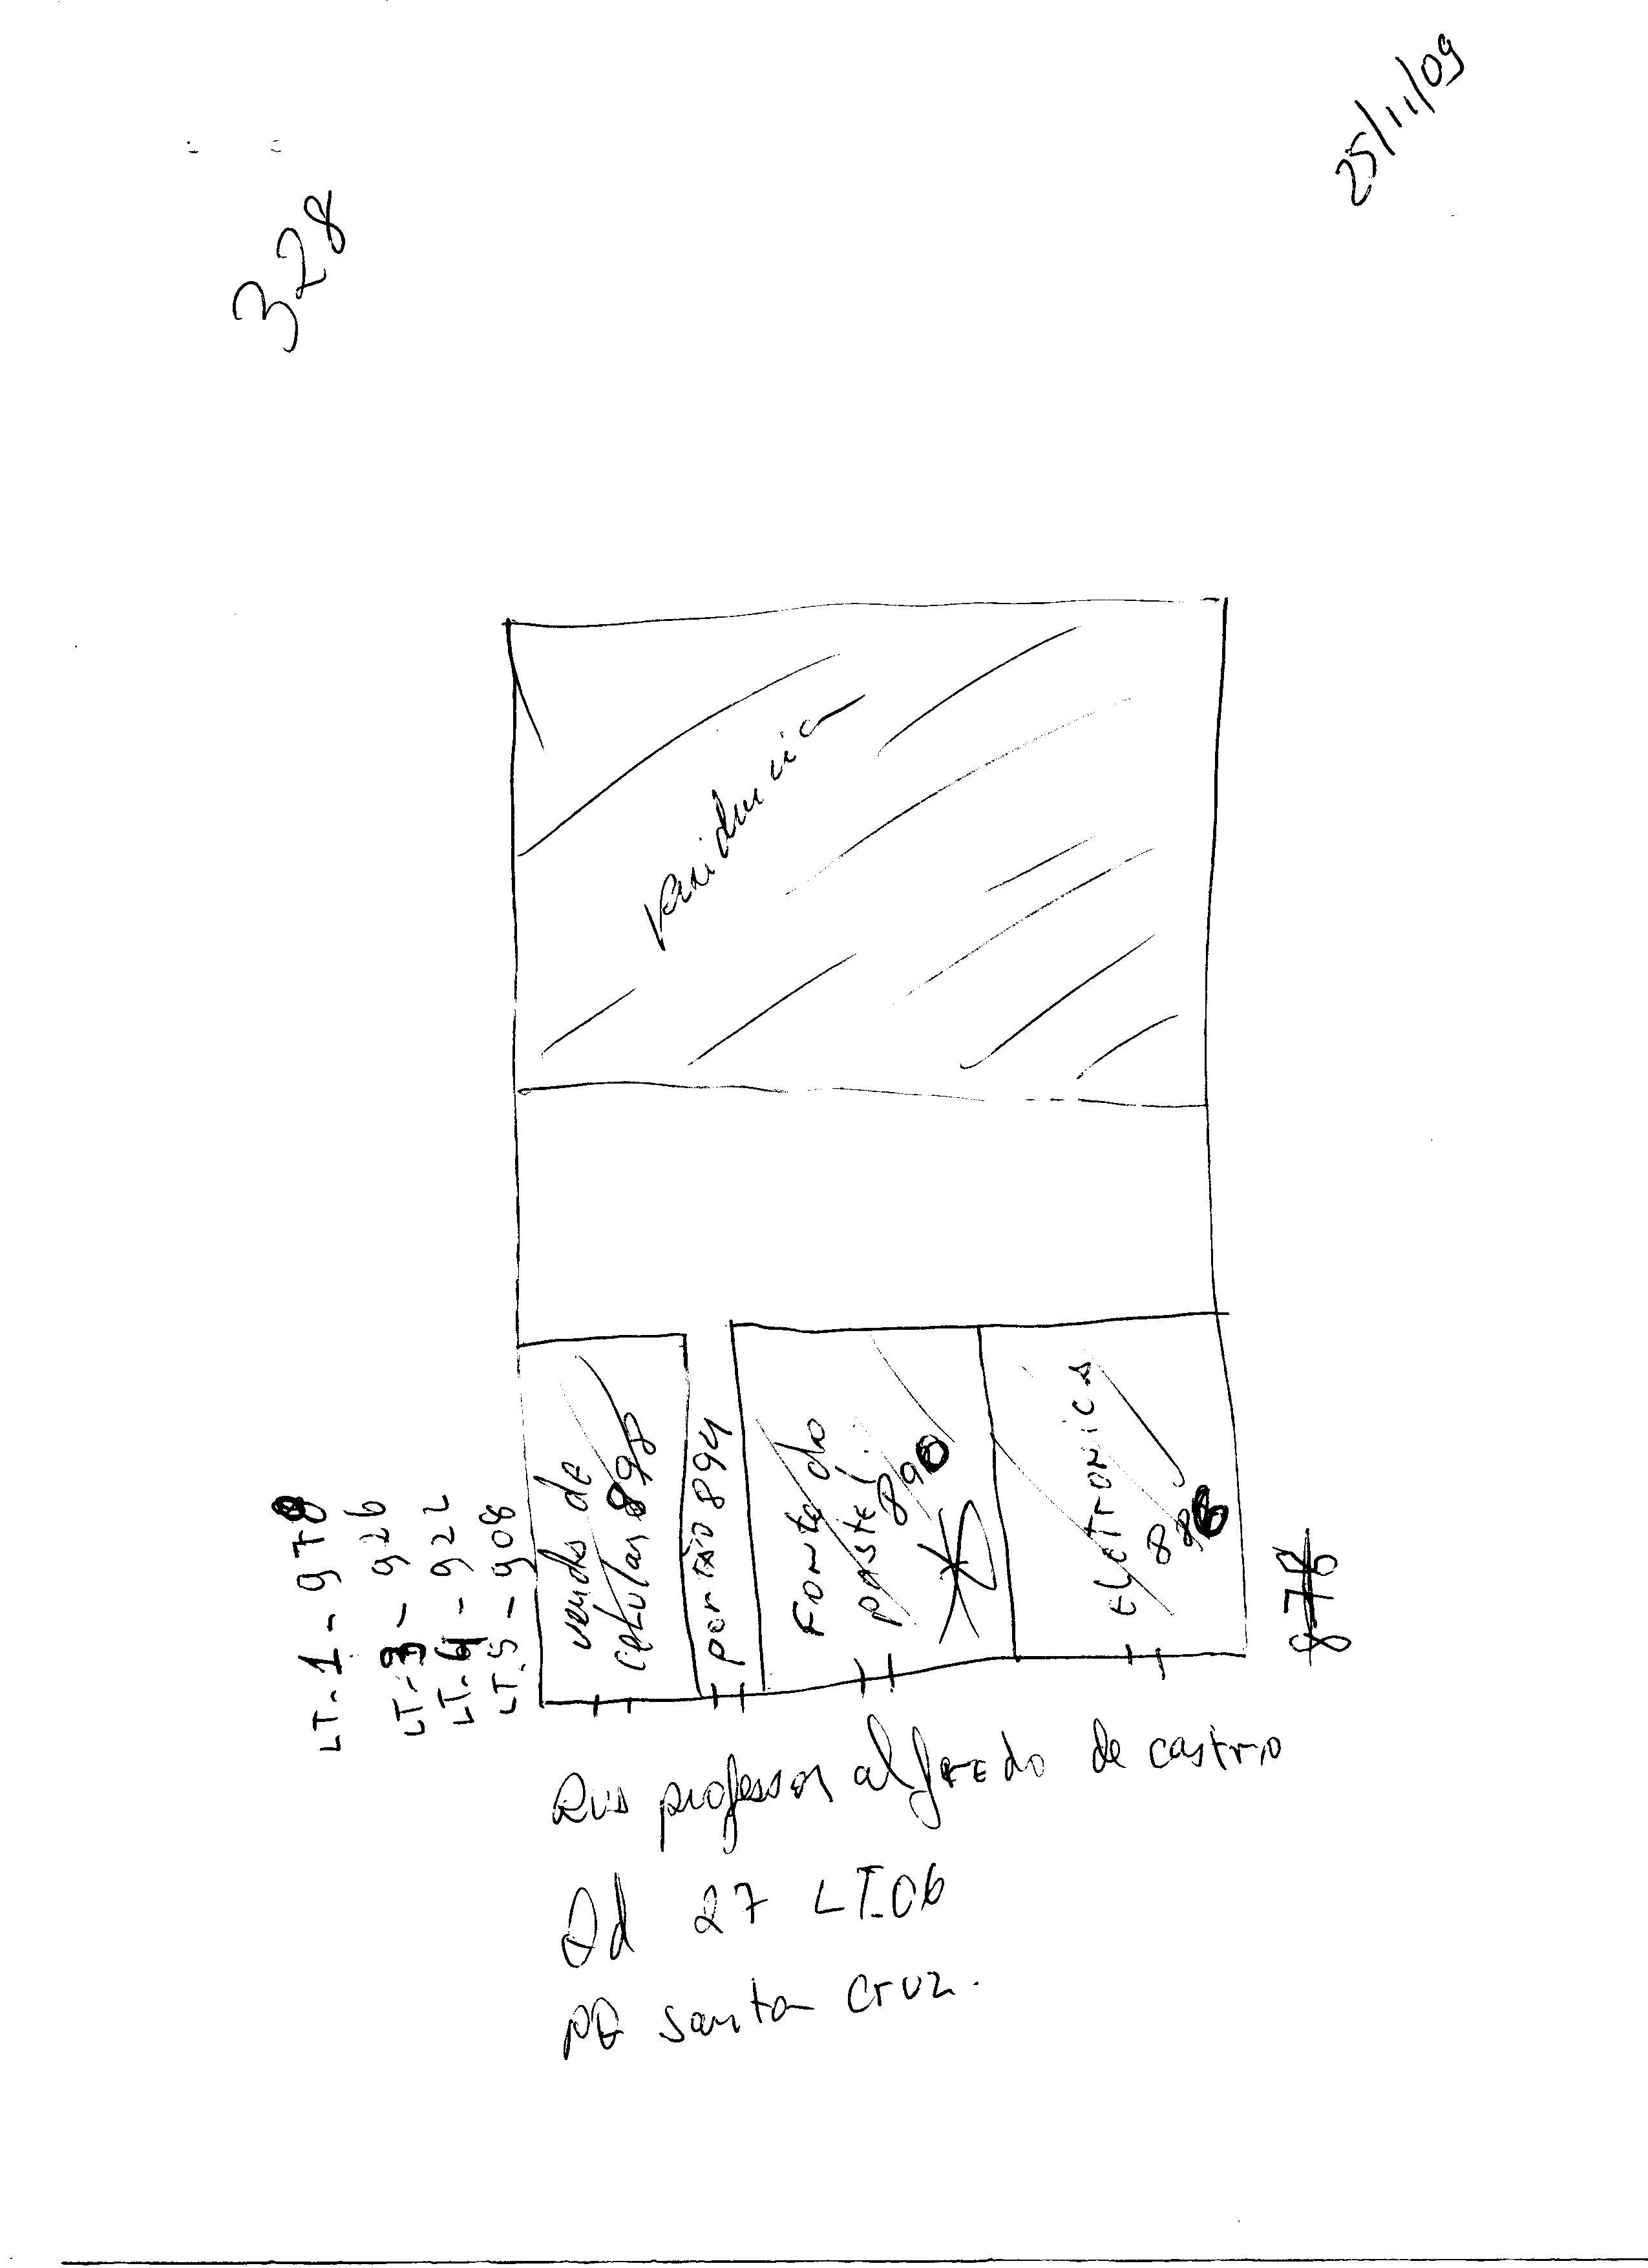 25/11/09
328
Residencia
LT-1-978
LT-3-926
LT-4-922
LT.5-908
vendas de
celular 898
portão 894
Fonte do
pastel.
890
ELETRONICA
886
878
Rua professor alfredo de castro
Qd 27 LT-06
PQ Santa Cruz.